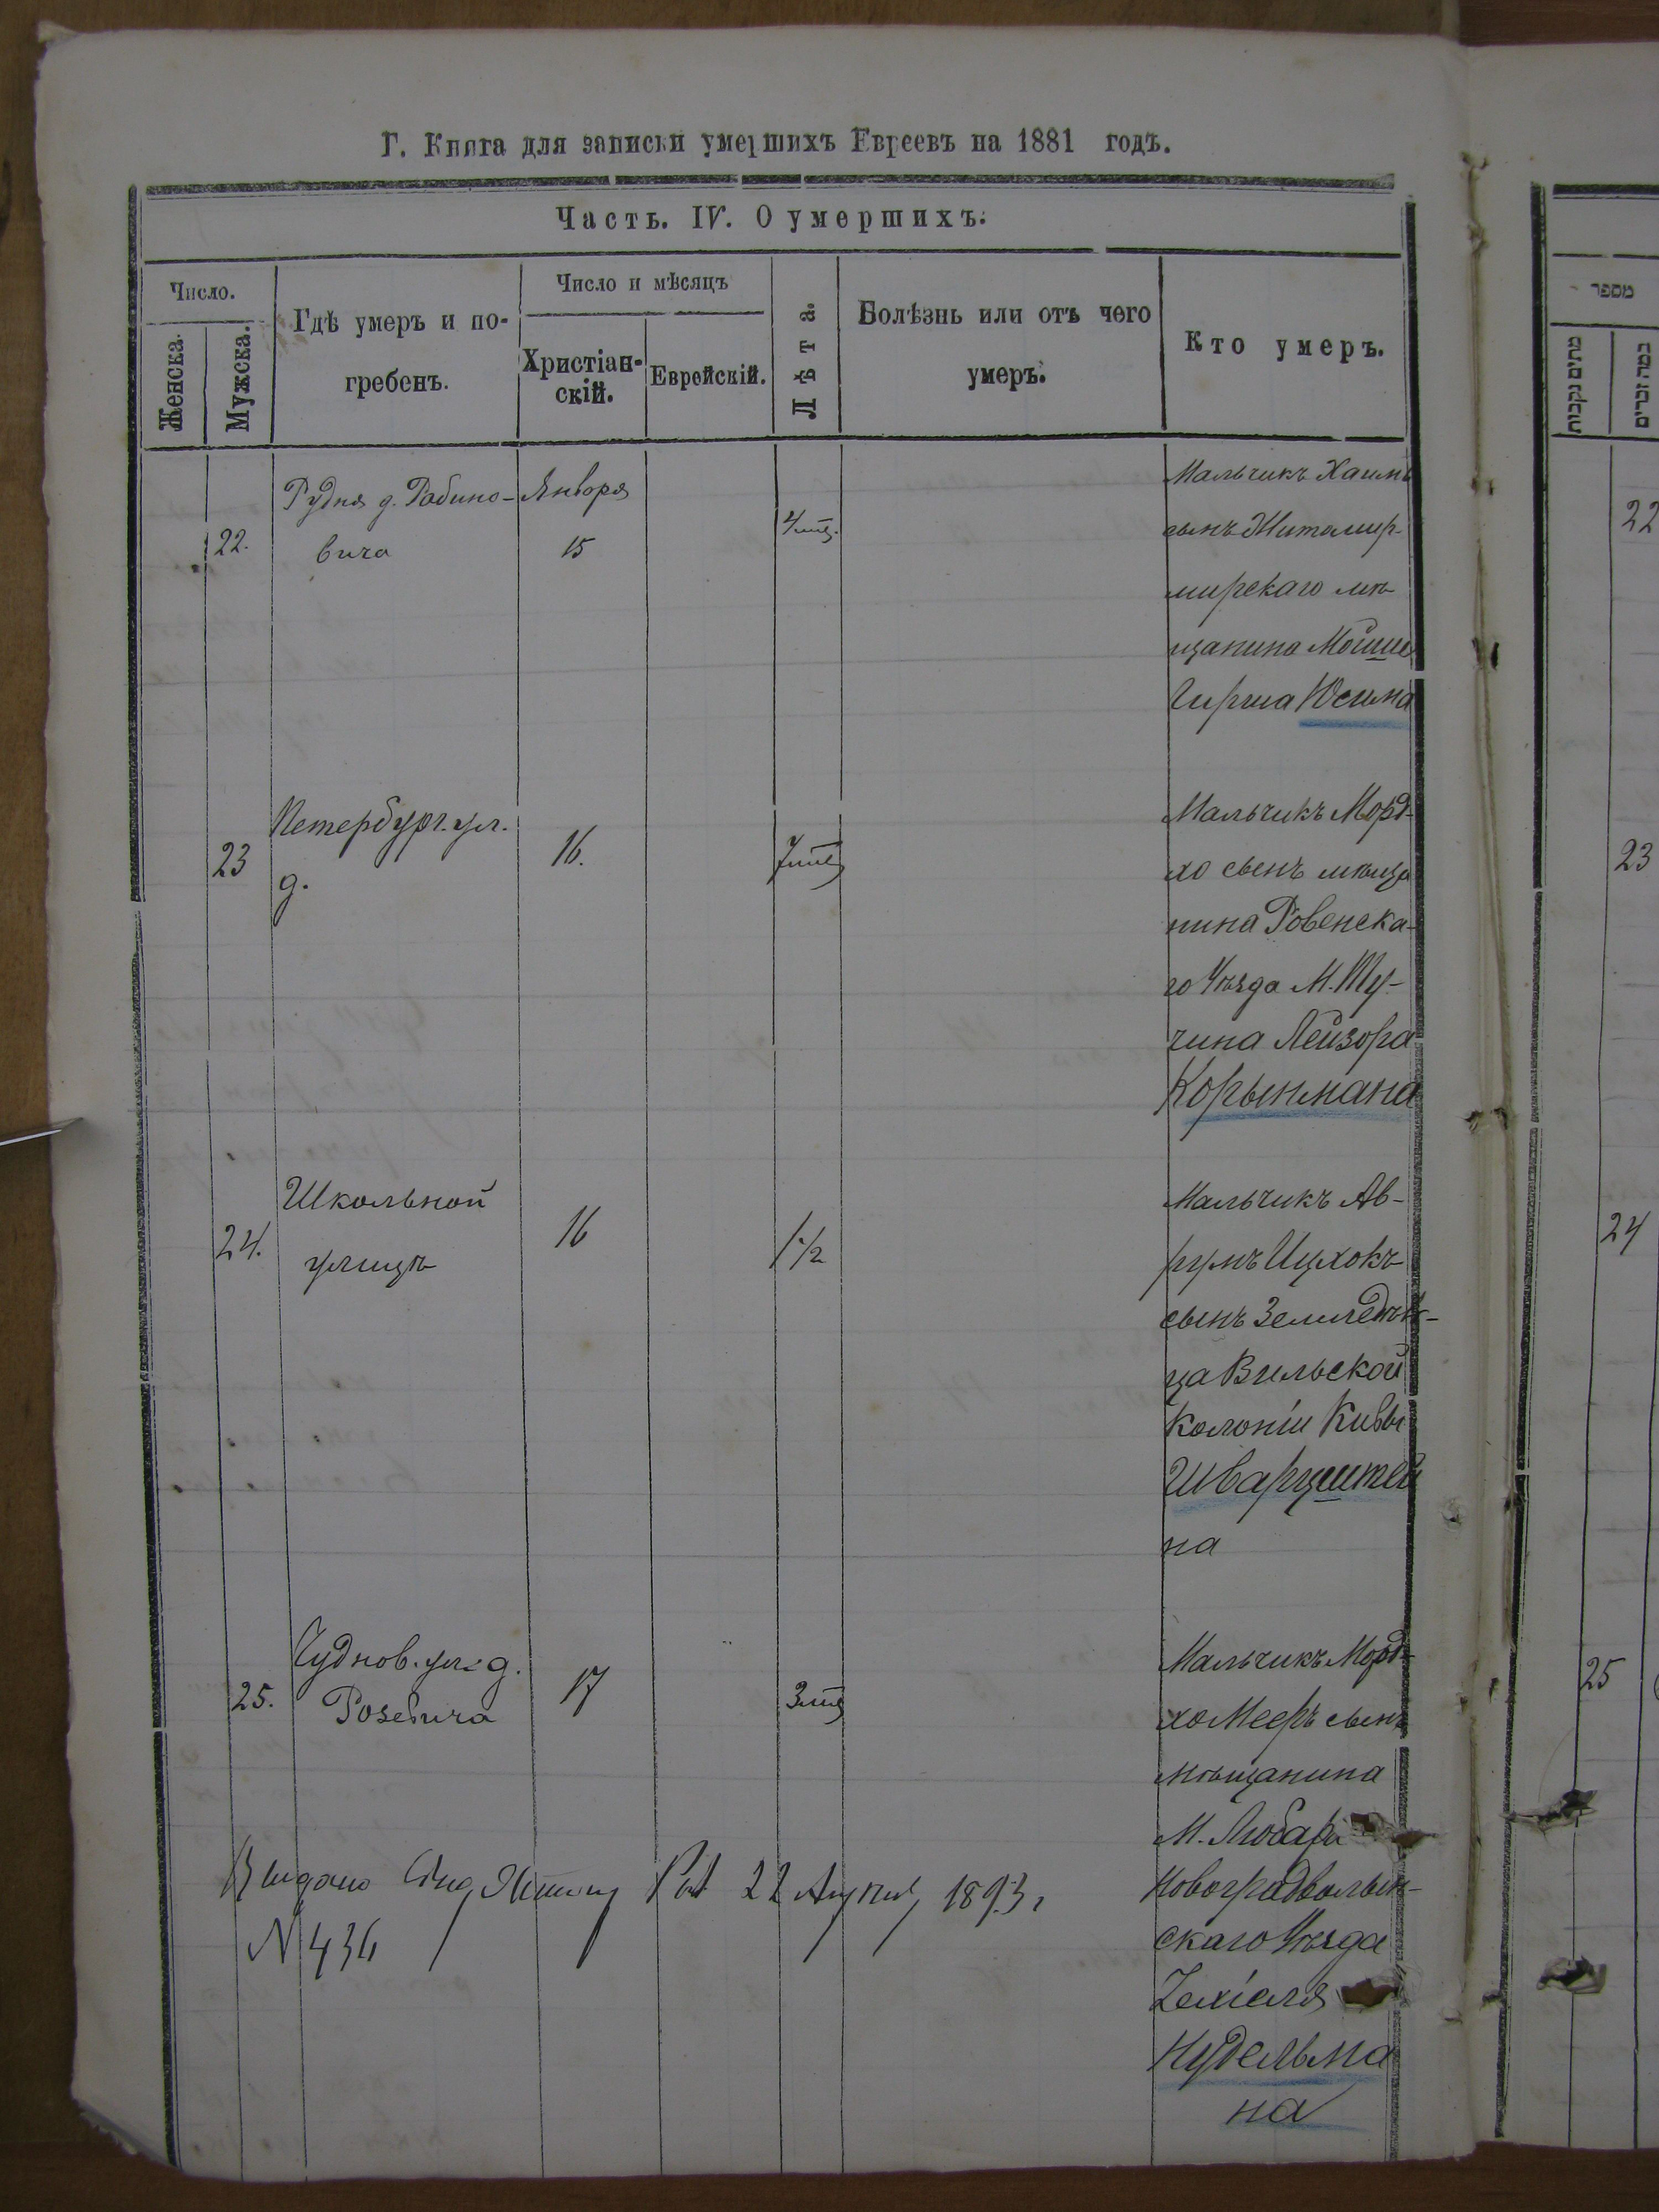 Г. Книга для записки умершихъ Евреевъ на 1881 годъ.
Часть. IV. О умершихъ.
Число.
Женска.
Мужска.
Гдѣ умеръ и по-
гребенъ.
Число и мѣсяцъ
Христіан-
скій.
Еврейскій.
Лѣта.
Болѣзнь или отъ чего
умеръ.
Кто умеръ.
22.
Рудня д. Рабино-
вича
Января
15
4 мѣ.
Мальчикъ Хаимъ
сынъ Житомир-
мирскаго мѣ-
щанина Мойше
Гирша Юсима
23
Петербург. ул.
д.
16.
7 мѣ
Мальчикъ Морд-
хо сынъ мѣща
нина Ровенска-
го Уѣзда М. Ту-
чина Лейзора
Корынмана
24.
Школьной
улицѣ
16
1 1/2
Мальчикъ Ав-
румъ Ицхокъ
сынъ Земледѣл-
ца Вильской
Колоніи Кивы
Шварцштей
на
25.
Чуднов. ул. д.
Розевича
17
3 мѣ
Мальчикъ Морд-
хо Мееръ сынъ
мѣщанина
М. Любара
Новоградволын-
скаго Уѣзда
Іехіеля
Нудельма
на
Выдано 22 1893 г
N 436
מספר
מתים נקבות
כמה זכרים
22
23
24
25